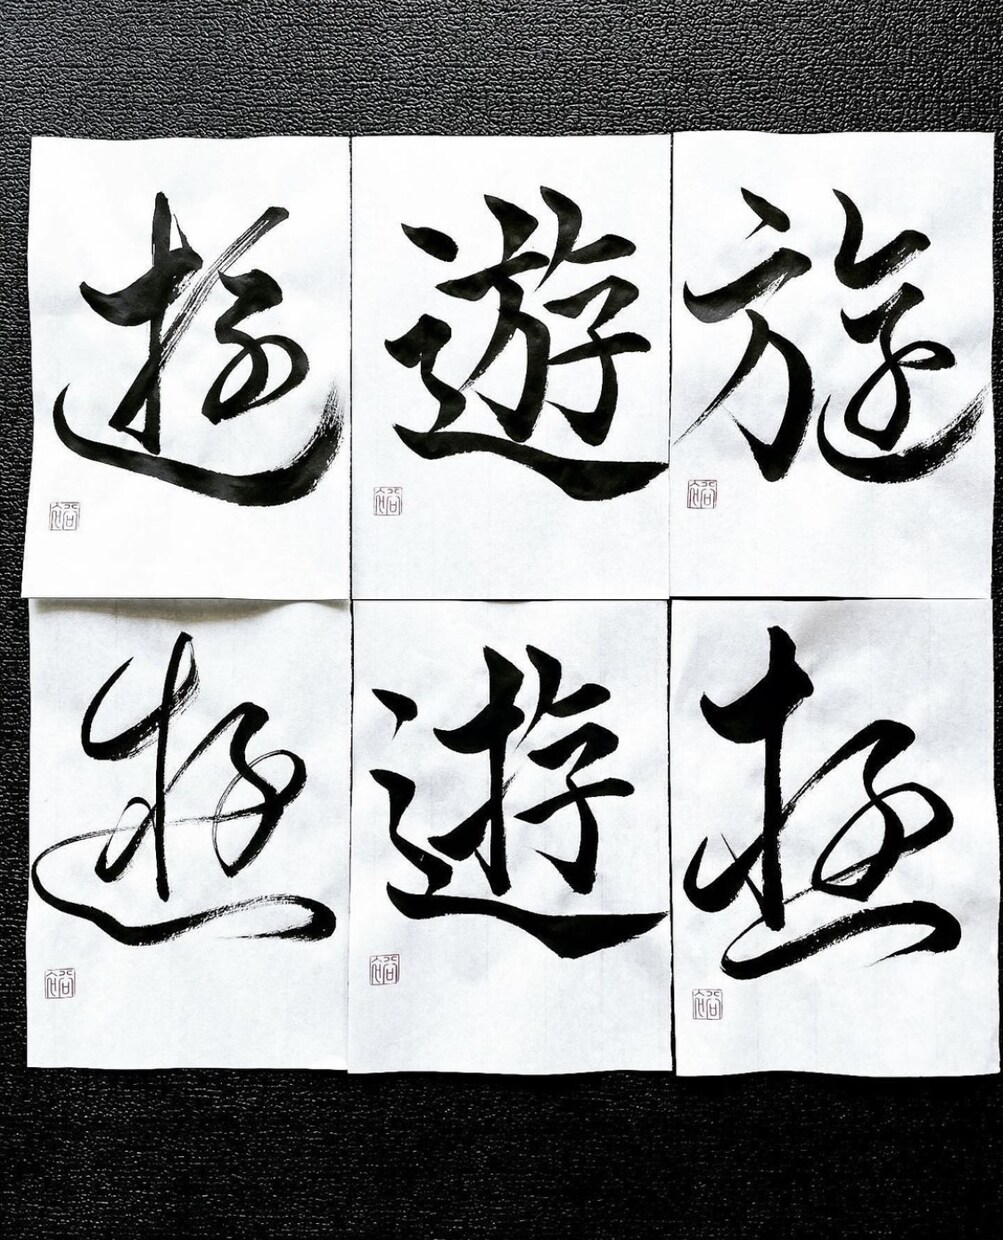 遊 遊 遊
遊 遊 遊